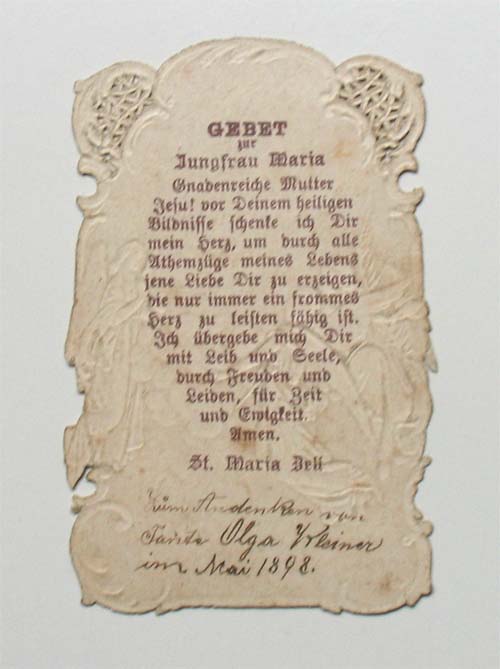 GEBET
zur
Jungfrau Maria
Gnadenreiche Mutter
Jesu! vor Deinem heiligen
Bildnisse schenke ich Dir
mein Herz, um durch alle
Athemzüge meines Lebens
jene Liebe Dir zu erzeigen,
die nur immer ein frommes
Herz zu leisten fähig ist.
Ich übergebe mich Dir
mit Leib und Seele,
durch Freuden und
Leiden, für Zeit
und Ewigkeit.
Amen.
St. Maria Zell
Zum Andenken von
Tante Olga
im Mai 1898.